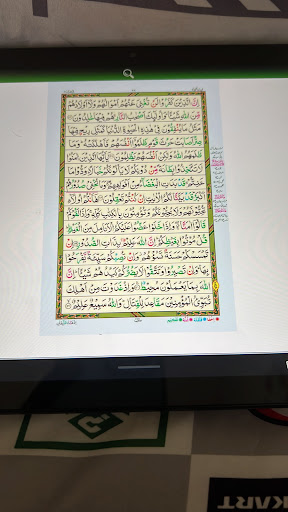 اِنَّ الَّذِيْنَ كَفَرُوْا لَنْ تُغْنِيَ عَنْهُمْ اَمْوَالُهُمْ وَلَاۤ اَوْلَادُهُمْ
مِّنَ اللّٰهِ شَيْـًٔا وَاُولٰٓئِكَ اَصْحٰبُ النَّارِ هُمْ فِيْهَا خٰلِدُوْنَ
مَثَلُ مَا يُنْفِقُوْنَ فِيْ هٰذِهِ الْحَيٰوةِ الدُّنْيَا كَمَثَلِ رِيْحٍ فِيْهَا
صِرٌّ اَصَابَتْ حَرْثَ قَوْمٍ ظَلَمُوْۤا اَنْفُسَهُمْ فَاَهْلَكَتْهُ وَمَا
ظَلَمَهُمُ اللّٰهُ وَلٰكِنْ اَنْفُسَهُمْ يَظْلِمُوْنَ يٰۤاَيُّهَا الَّذِيْنَ اٰمَنُوْا
لَا تَتَّخِذُوْا بِطَانَةً مِّنْ دُوْنِكُمْ لَا يَاْلُوْنَكُمْ خَبَالًا وَدُّوْا مَا
عَنِتُّمْ قَدْ بَدَتِ الْبَغْضَآءُ مِنْ اَفْوَاهِهِمْ وَمَا تُخْفِيْ صُدُوْرُهُمْ
اَكْبَرُ قَدْ بَيَّنَّا لَكُمُ الْاٰيٰتِ اِنْ كُنْتُمْ تَعْقِلُوْنَ هٰۤاَنْتُمْ اُولَآءِ
تُحِبُّوْنَهُمْ وَلَا يُحِبُّوْنَكُمْ وَتُؤْمِنُوْنَ بِالْكِتٰبِ كُلِّهٖ وَاِذَا لَقُوْكُمْ
قَالُوْۤا اٰمَنَّا وَاِذَا خَلَوْا عَضُّوْا عَلَيْكُمُ الْاَنَامِلَ مِنَ الْغَيْظِ
قُلْ مُوْتُوْا بِغَيْظِكُمْ اِنَّ اللّٰهَ عَلِيْمٌۢ بِذَاتِ الصُّدُوْرِ اِنْ
تَمْسَسْكُمْ حَسَنَةٌ تَسُؤْهُمْ وَاِنْ تُصِبْكُمْ سَيِّئَةٌ يَّفْرَحُوْا
بِهَا وَاِنْ تَصْبِرُوْا وَتَتَّقُوْا لَا يَضُرُّكُمْ كَيْدُهُمْ شَيْـًٔا اِنَّ
اللّٰهَ بِمَا يَعْمَلُوْنَ مُحِيْطٌ وَاِذْ غَدَوْتَ مِنْ اَهْلِكَ
تُبَوِّئُ الْمُؤْمِنِيْنَ مَقَاعِدَ لِلْقِتَالِ وَاللّٰهُ سَمِيْعٌ عَلِيْمٌ
KART